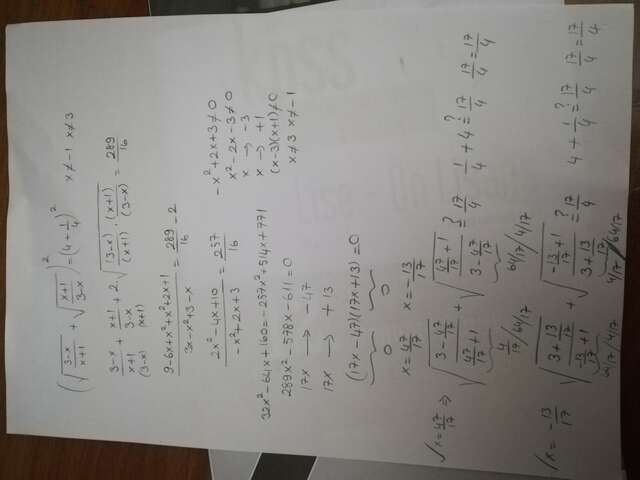 (√(3-x)/(x+1) + √(x+1)/(3-x))² = (4+1/4)² x≠-1 x≠3
(3-x)/(x+1) + (x+1)/(3-x) + 2.√(3-x)/(x+1) . (x+1)/(3-x) = 289/16
(3-x) (x+1)
(9-6x+x²+x²+2x+1)/(3x-x²+3-x) = 289/16 - 2
(2x²-4x+10)/(-x²+2x+3) = 257/16
-x²+2x+3≠0
x²-2x-3≠0
x → -3
x → +1
(x-3)(x+1)≠0
x≠3 x≠-1
32x²-64x+160=-257x²+514x+771
289x²-578x-611=0
17x → -47
17x → +13
(17x-47)(17x+13)=0
0 0
x=47/17 x=-13/17
√x=47/17 ⇒ √(3-47/17)/(47/17+1) + √(47/17+1)/(3-47/17) ?= 17/4 1/4+4 ?= 17/4 17/4=17/4
4/17/64/17 64/17/4/17
√x=-13/17 √(3+13/17)/(-13/17+1) + √(-13/17+1)/(3+13/17) ?= 17/4 4+1/4 ?= 17/4 17/4=17/4
64/17/4/17 4/17/64/17